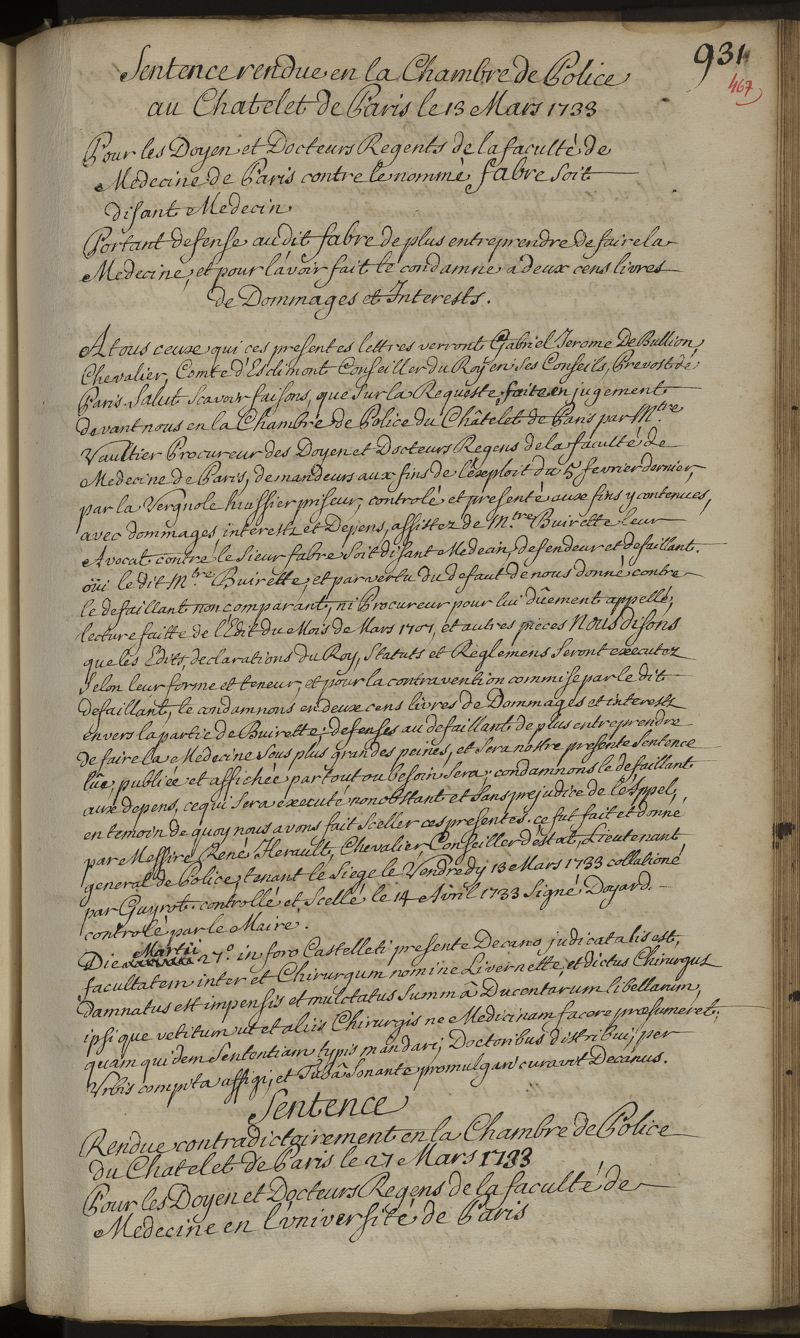 931
467
Sentence rendue en la Chambre de Police
au Chatelet de Paris le 13 Mars 1733
Pour les Doyen et Docteurs Regents de la faculté de
Medecine de Paris contre le nommé fabre soit
disant Medecin
Portant defense audit fabre de plus entreprendre de faire la
Medecine, et pour l'avoir fait le condamne a deux cens livres
de Dommages et Interests.
A tous ceux qui ces presentes lettres verront Gabriel Jerome De Bullion,
Chevalier, Comte d'Esclimont Conseiller du Roy en ses Conseils, Prevost de
Paris. Salut Scavoir faisons, que sur la Requeste faite en jugement
devant nous en la Chambre de Police du Châtelet de Paris par Mtre
Vaultier Procureur des Doyen et Docteurs Regens de la faculté de
Medecine de Paris, demandeurs aux fins de l'exploit du 5 fevrier dernier,
par la Vergnole huissier priseur, controlé et presenté aux fins y contenues,
avec dommages, interests et Depens, assistez de Mtre Buirette leur
Avocat contre le Sieur fabre Soit disant Medecin, defendeur et defaillant.
oüi le dit Mtre Buirette, et par vertu du defaut de nous donné contre
le defaillant non comparant, ni Procureur pour lui dûement appellé;
lecture faitte de l'Edit du Mois de Mars 1707, et autres pieces Nous disons
que les Edits, declarations du Roy, Statuts et Reglemens seront executez
selon leur forme et teneur, et pour la contravention commise par le dit
defaillant, le condamnons en deux cens livres de Dommages et interests
envers la partie de Buirette; defenses au defaillant de plus entreprendre
de faire la Medecine sous plus grandes peines, et sera nostre presente Sentence
lûe, publiée et affichée partout ou besoin sera; condamnons le defaillant
aux depens, ce qui sera executé nonobstant et sans prejudice de l'appel,
en temoin de quoy nous avons fait sceller ces presentes. ce fut fait et donné
par Messire René Herault, Chevalier Conseiller d'Estat, Lieutenant
general de Police, tenant le Siege le Vendredy 13 Mars 1733 collationé
par Guyrot. controllé et Scellé le 14 Avril 1733 Signé Doyard.
controlé par le Maire.
Die Martii 27o. in foro Castelleti presente Decano judicata lis est,
facultatem inter et Chirurgum nomine Livernette, et dictus Chirurgus
damnatus est impensis et mulctatus summâ Ducentarum libellarum,
ipsi que vetitum ut et aliis Chirurgis ne Medicinam facere præsumeret;
quam quidem Sententiam typis mandari, Doctoribus distribui, per
Urbis compita affigi, et Tubâ Sonante promulgari curavit Decanus.
Sentence
Rendue contradictoirement en la Chambre de Police
du Chatelet de Paris le 27 Mars 1733
Pour les Doyen et Docteurs Regens de la faculté de
Medecine en l'université de Paris